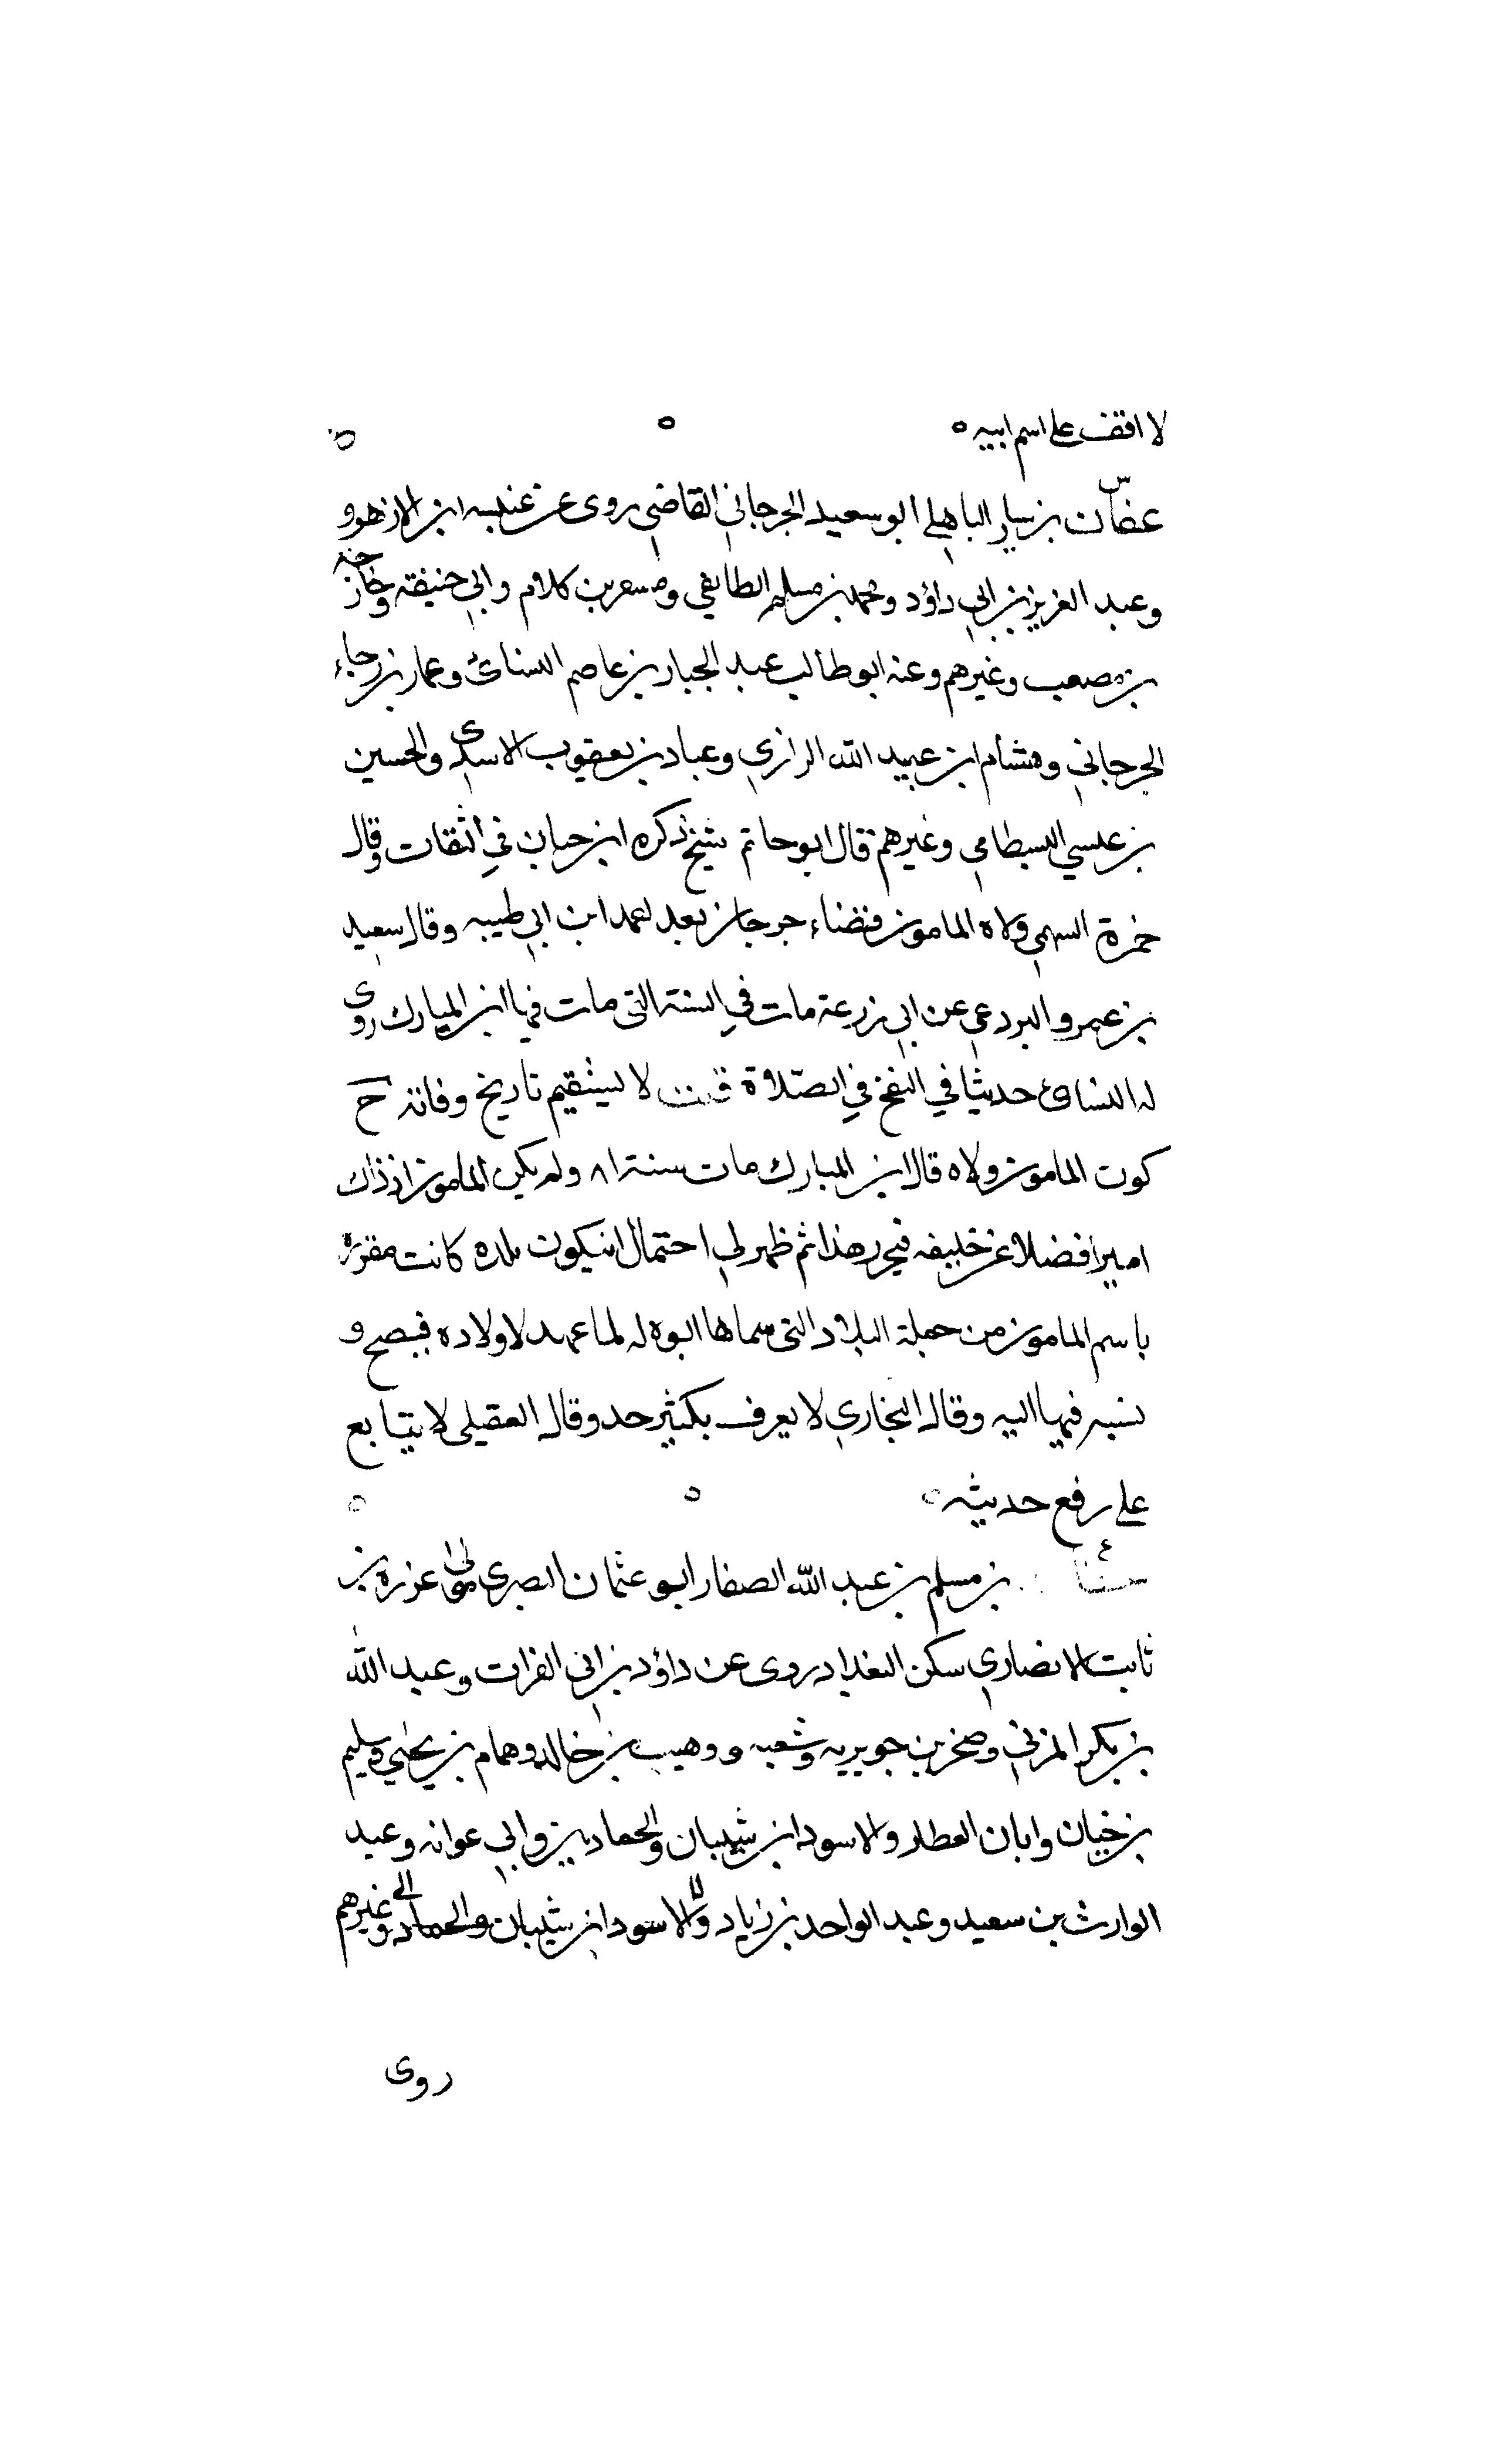 لا اقف على اسم ابيه ٥ ٥
س
عفان بن سيار الباهلي ابو سعيد الجرجاني القاضي روى عن عنبسه ابن الازهر و
وعبد العزيز بن ابي داؤد ومحمد بن مسلم الطايفي ومسعر بن كلام وابي حنيفة وخارجه
بن مصعب وغيرهم وعنه ابو طالب عبد الجبار بن عاصم النسائ وعمار بن رجاء
الجرجاني وهشام ابن عبيد الله الرازي وعباد بن يعقوب الاسدى والحسين
بن عيسي البسطامي وغيرهم قال ابو حاتم شيخ ذكره ابن حبان في الثقات وقال
حمزة السهمي ولاه المامون قضاء جرجان بعد احمد ابن ابي طيبه وقال سعيد
بن عمرو البردعي عن ابي زرعة مات في السنة التى مات فيها ابن المبارك روى
له النسائ حديثا في النفخ في الصّلاة قلت لا يستقيم تاريخ وفاته ح
كون المامون ولاه قال ابن المبارك مات سنة ١٨ ولم يكن المامون اذ ذاك
اميرا فضلا عن خليفه فيحرر هذا ثم ظهر لي احتمال انيكون بلده كانت مقررة
باسم المامون من جملة البلاد التى سماها ابوه له لما عهد لاولاده فيصح و
نسبه فيها اليه وقال البخاري لا يعرف بكثير حد وقال العقيلى لا يتابع
على رفع حديثه ٥ ٥ ٥
ع
عفان بن مسلم بن عبد الله الصفار ابو عثمان البصرى مولى عزره بن
ثابت الانصاري سكن البغداد روى عن داؤد بن ابي الفرات وعبد الله
بن بكر المزني وصخر بن جويريه وشعبه ووهيب بن خالد وهمام بن يحيي وسليم
بن حيان وابان العطار والاسود ابن شيبان والحمادين وابي عوانه وعبد
الوارث بن سعيد وعبد الواحد بن زياد والاسود ابن شيبان والحماد وغيرهم
روى